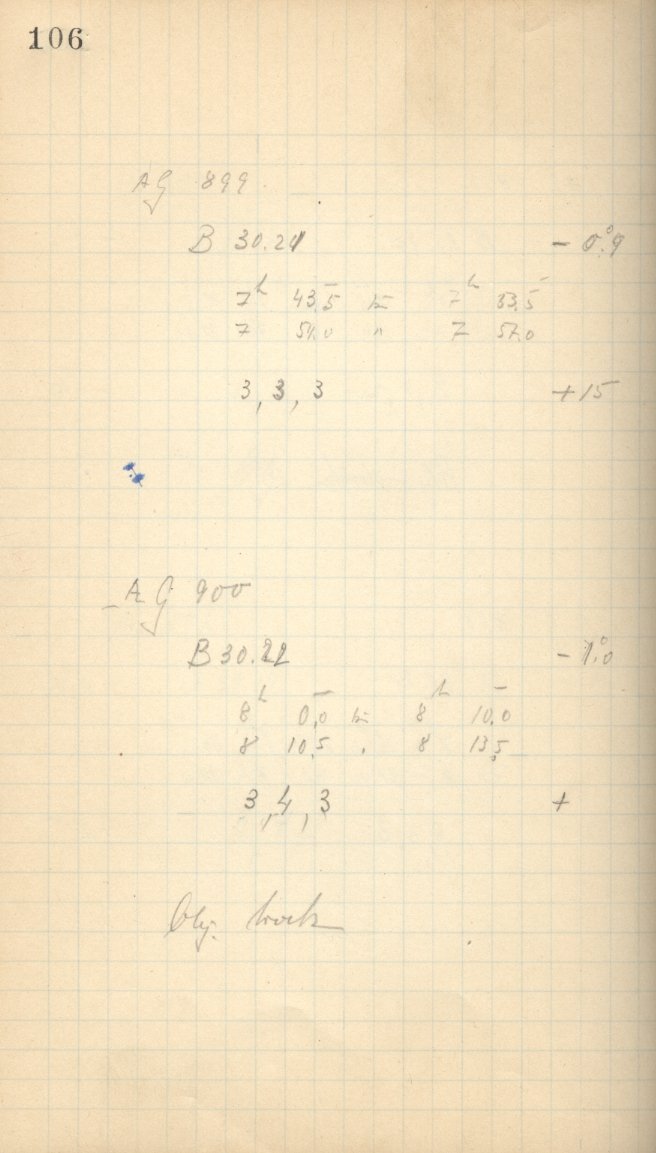 106
AG 899
B 30.21 - 0°.9
7h 43,5 bis 7h 53,5
7 54,0 " 7 57,0
3, 3, 3 +15
AG 900
B 30.22 - 1°.0
8h 0,0 bis 8h 10,0
8 10,5 " 8 13,5
3, 4, 3 +
Obj.